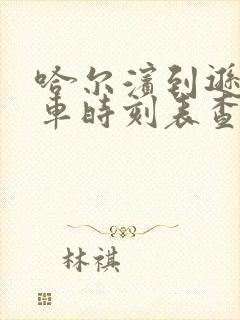 哈尔滨到逊
车时刻表查
林祺